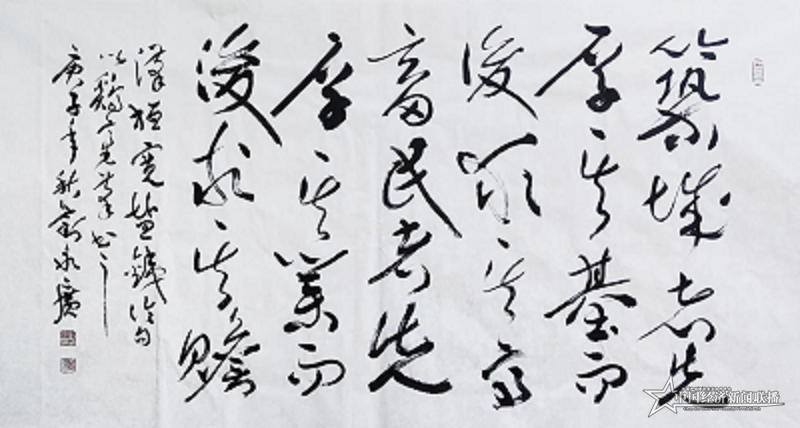 築城者先
厚其基而
後求其高
畜民者先
厚其業而
後求其贍
漢桓寬鹽鐵論句
以
庚子年秋劉永廣
中国经济新闻联播